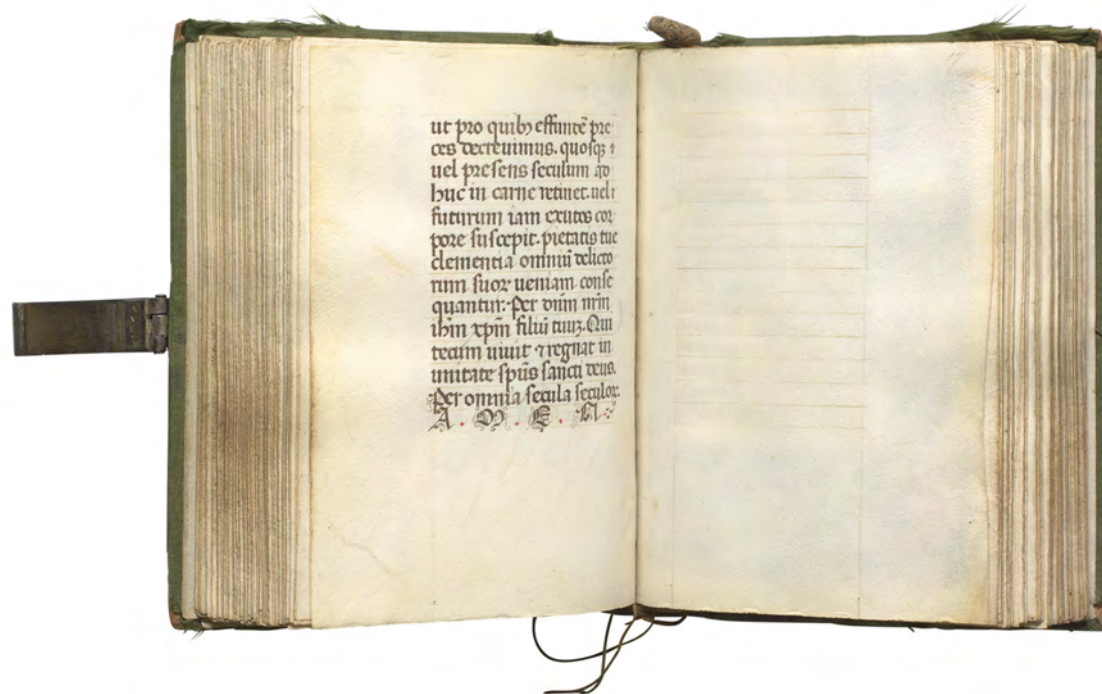 ut pro quibꝫ effundẽ pre
ces decreuimus. quosqꝫ ł
uel presens seculum ad
huc in carne retinet. uel ł
futurum iam exutos cor
pore suscepit. pietatis tue
clementia omniũ delicto
rum suoꝝ ueniam conse
quantur. Per dñm nr̃m
ihm̃ xpm̃ filiũ tuuꝫ. Qui
tecum uiuit ⁊ regnat in
unitate sp̃us sancti deus.
Per omnia secula seculoꝝ.
A. M. E. N